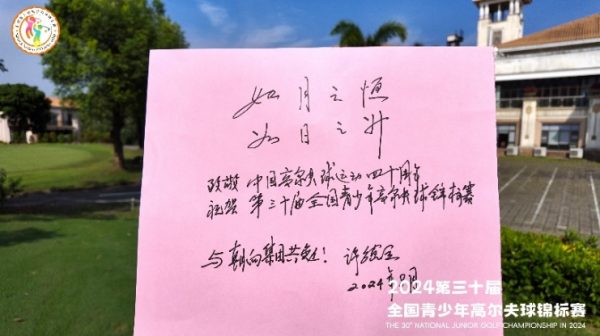 如月之恒
如日之升
致敬 中国高尔夫球运动四十周年
祝贺 第三十届全国青少年高尔夫球锦标赛
与朝向集团共勉!
2024年 月
2024第三十届
全国青少年高尔夫球锦标赛
THE 30TH NATIONAL JUNIOR GOLF CHAMPIONSHIP IN 2024